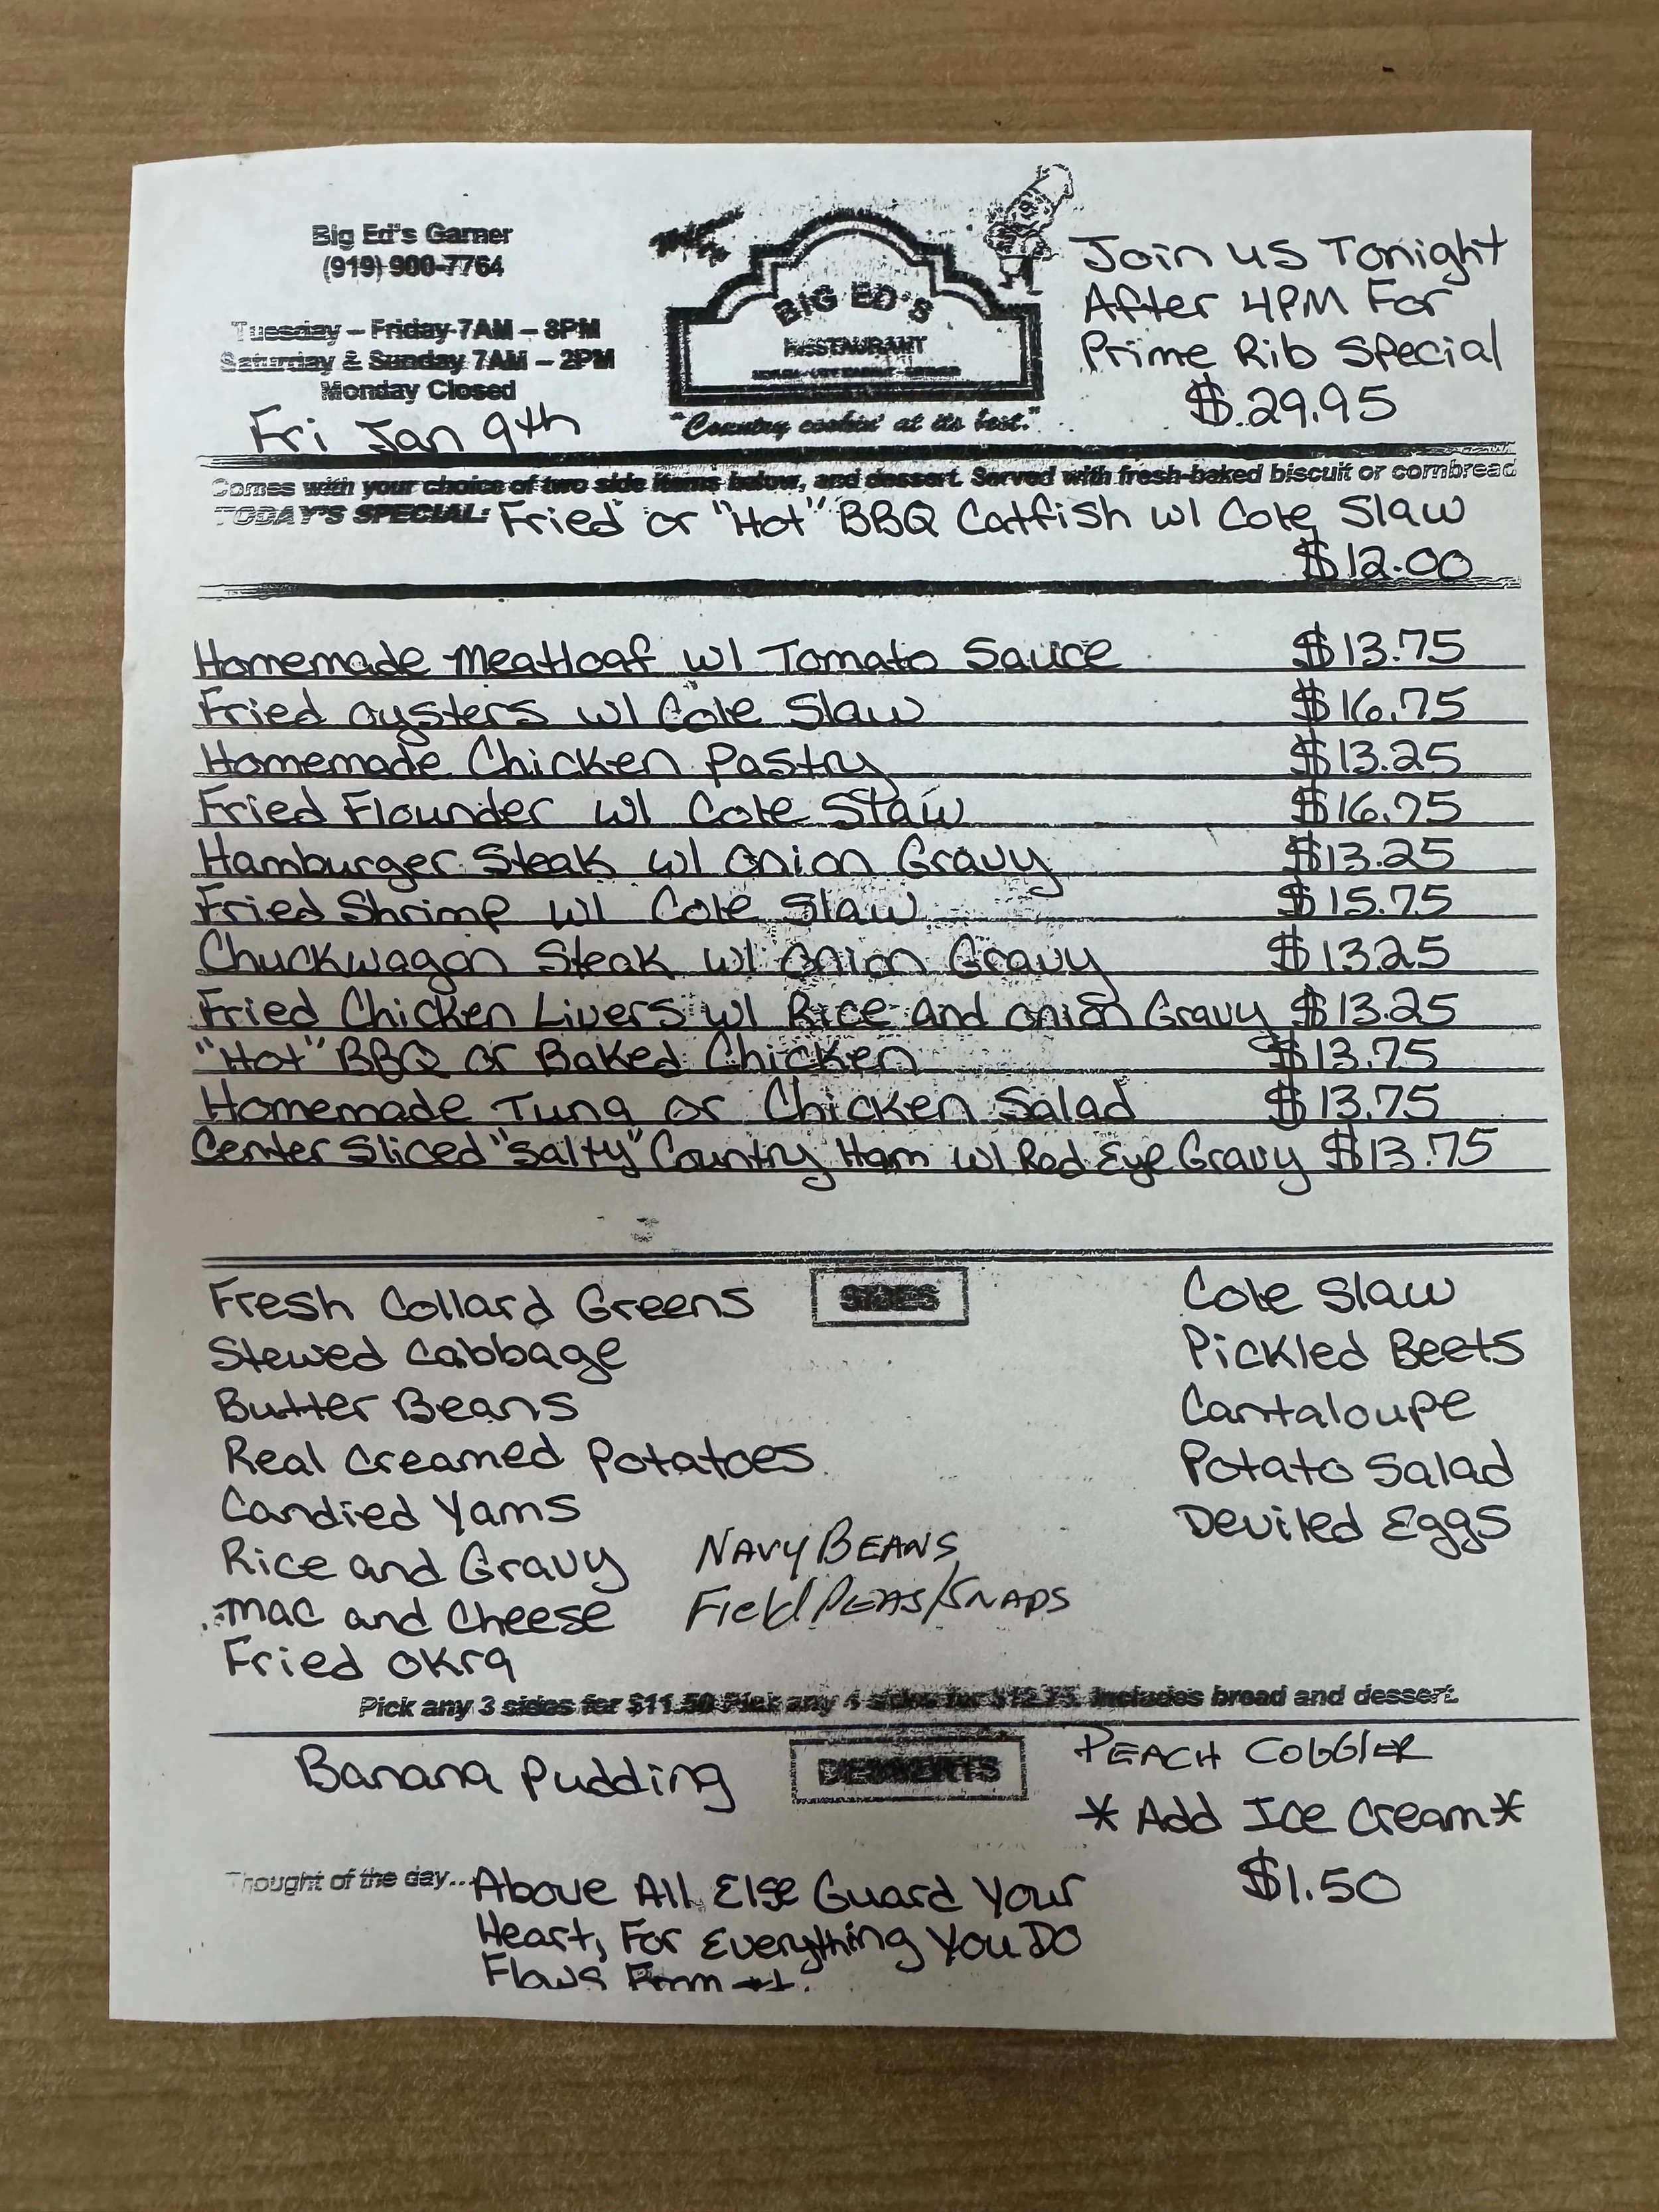 Big Ed's Garner
(919) 900-7764
Tuesday – Friday 7AM – 8PM
Saturday & Sunday 7AM – 2PM
Monday Closed
Fri Jan 9th
BIG ED'S
RESTAURANT
"Country cookin' at its best."
Join us Tonight
After 4PM For
Prime Rib Special
$.29.95
Comes with your choice of two side items below, and dessert. Served with fresh-baked biscuit or cornbread
TODAY'S SPECIAL: Fried or "Hot" BBQ Catfish w/ Cole Slaw
$12.00
Homemade Meatloaf w/ Tomato Sauce $13.75
Fried oysters w/ Cole Slaw $16.75
Homemade Chicken Pastry $13.25
Fried Flounder w/ Cole Slaw $16.75
Hamburger Steak w/ onion Gravy $13.25
Fried Shrimp w/ Cole Slaw $15.75
Chuckwagon Steak w/ onion Gravy $13.25
Fried Chicken Livers w/ Rice and onion Gravy $13.25
"Hot" BBQ or Baked Chicken $13.75
Homemade Tuna or Chicken Salad $13.75
Center Sliced "Salty" Country Ham w/ Red Eye Gravy $13.75
SIDES
Fresh Collard Greens
Stewed Cabbage
Butter Beans
Real Creamed Potatoes
Candied Yams
Rice and Gravy
Mac and Cheese
Fried Okra
Navy Beans
Field Peas/Snaps
Cole Slaw
Pickled Beets
Cantaloupe
Potato Salad
Deviled Eggs
Pick any 3 sides for $11.50 Pick any 4 sides for $12.75. Includes bread and dessert.
Banana Pudding
DESSERTS
Peach Cobbler
*Add Ice Cream*
$1.50
Thought of the day... Above All Else Guard Your
Heart, For Everything You Do
Flows From it.